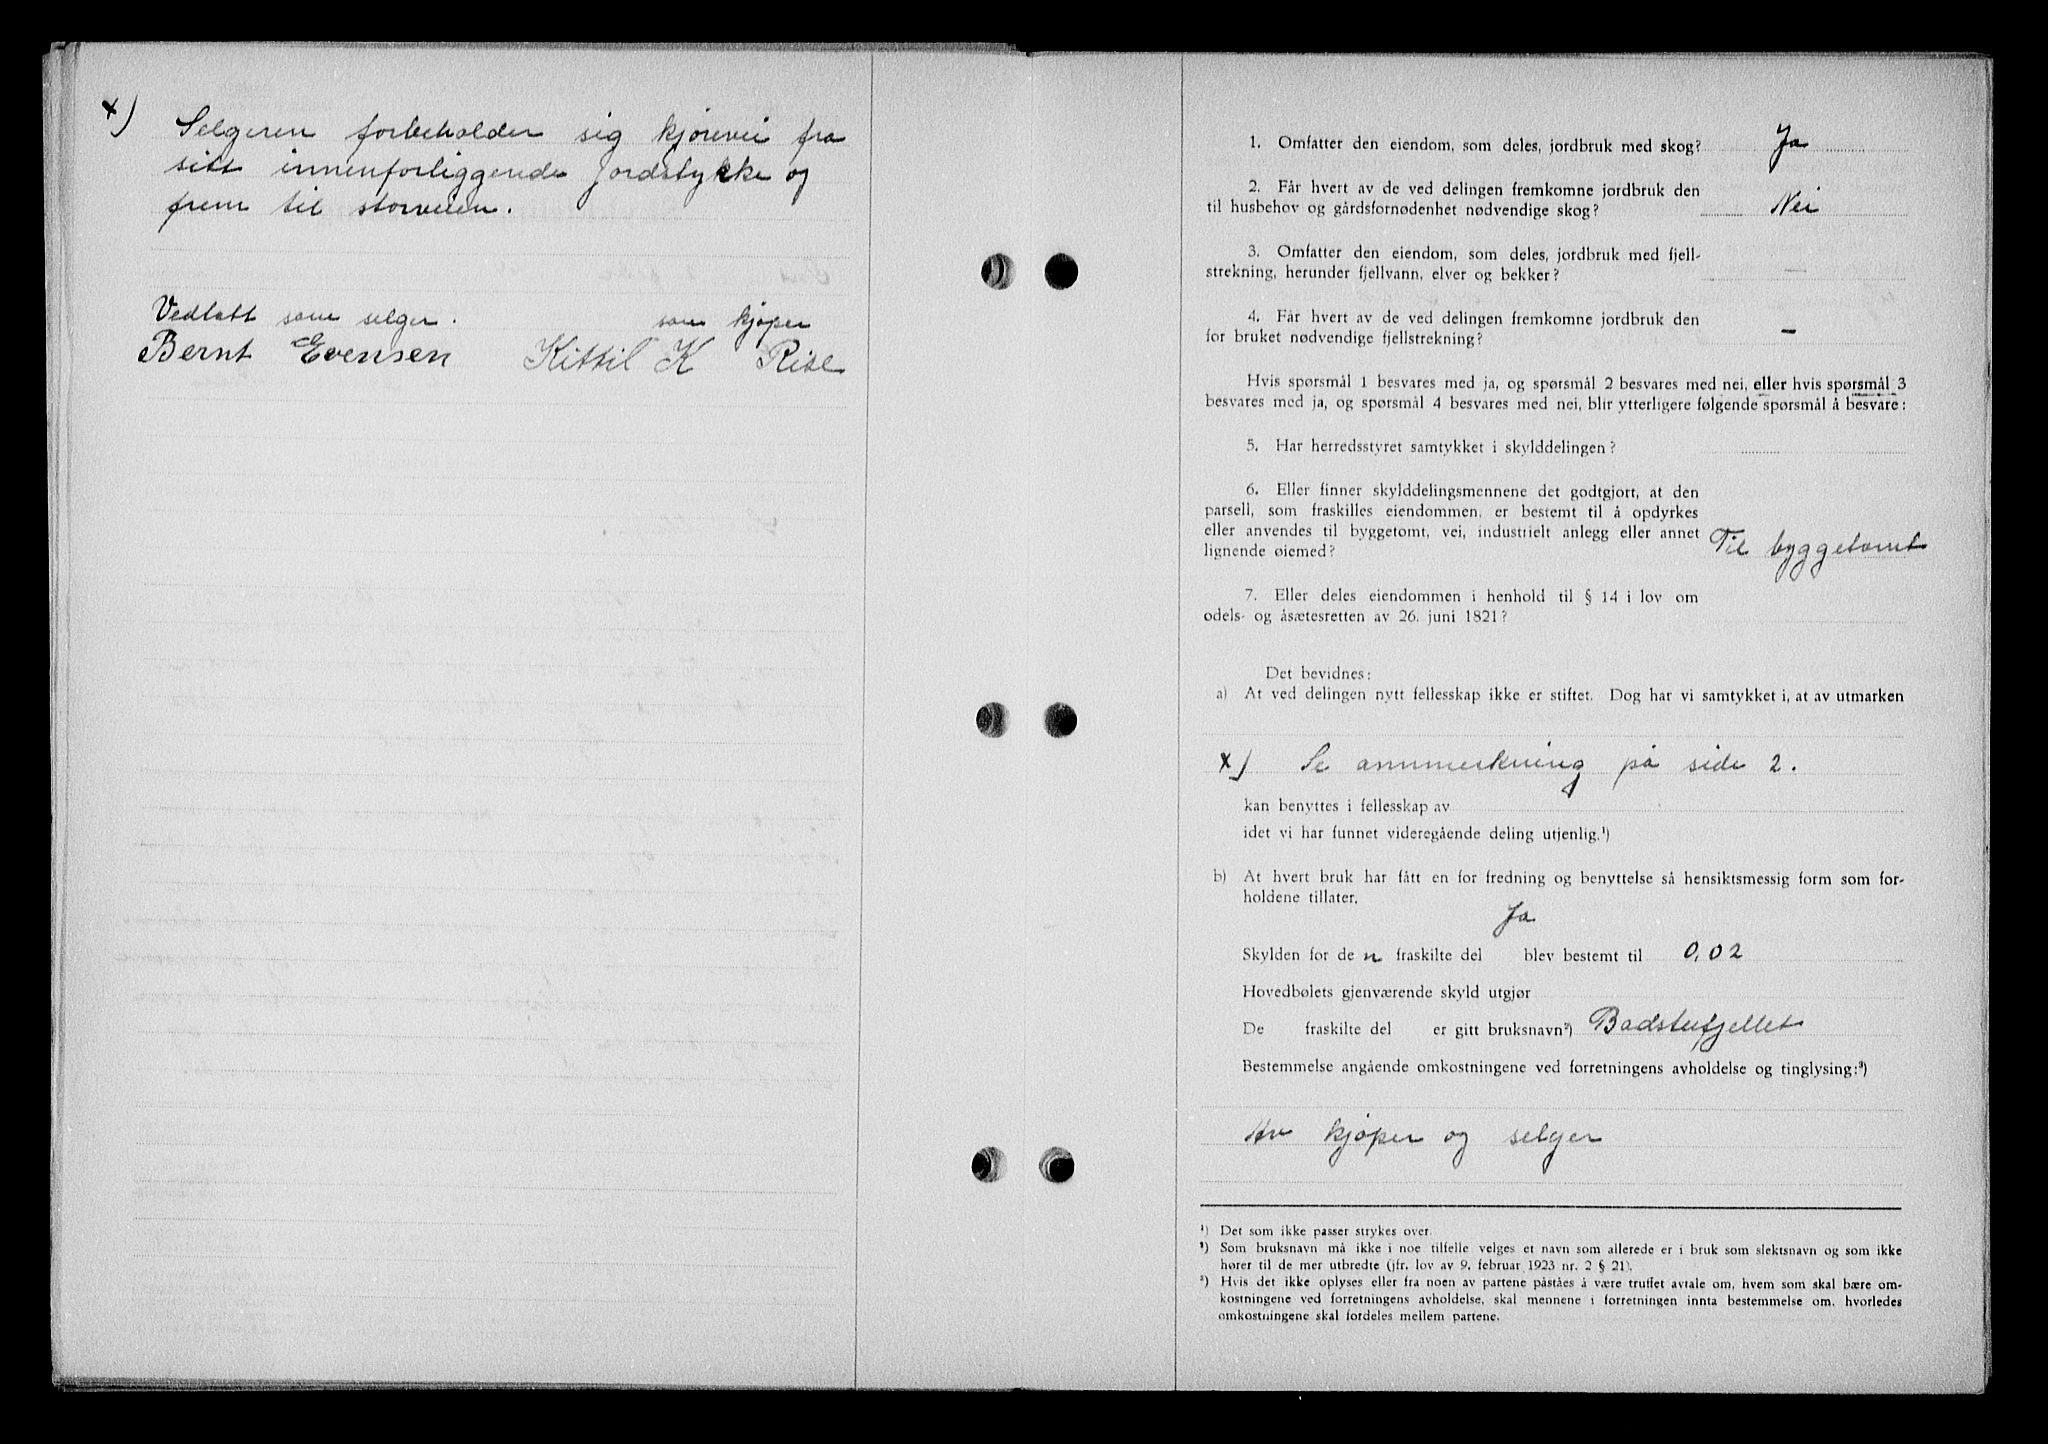 x) Selgeren forbeholder sig kjørevei fra
sitt innenforliggende Jordstykke og
frem til storveien.
Vedtatt som selger. som kjøper
Bernt Evensen Kittil K Rise
1. Omfatter den eiendom, som deles, jordbruk med skog? Ja
2. Får hvert av de ved delingen fremkomne jordbruk den
til husbehov og gårdsfornødenhet nødvendige skog? Nei
3. Omfatter den eiendom, som deles, jordbruk med fjell-
strekning, herunder fjellvann, elver og bekker? –
4. Får hvert av de ved delingen fremkomne jordbruk den
for bruket nødvendige fjellstrekning? –
Hvis spørsmål 1 besvares med ja, og spørsmål 2 besvares med nei, eller hvis spørsmål 3
besvares med ja, og spørsmål 4 besvares med nei, blir ytterligere følgende spørsmål å besvare:
5. Har herredsstyret samtykket i skylddelingen?
6. Eller finner skylddelingsmennene det godtgjort, at den
parsell, som fraskilles eiendommen, er bestemt til å opdyrkes
eller anvendes til byggetomt, vei, industrielt anlegg eller annet
lignende øiemed? Til byggetomt
7. Eller deles eiendommen i henhold til § 14 i lov om
odels- og åsætesretten av 26. juni 1821?
Det bevidnes:
a) At ved delingen nytt fellesskap ikke er stiftet. Dog har vi samtykket i, at av utmarken
x) Se anmmerkning på side 2.
kan benyttes i fellesskap av
idet vi har funnet videregående deling utjenlig.¹)
b) At hvert bruk har fått en for fredning og benyttelse så hensiktsmessig form som for-
holdene tillater.
Ja
Skylden for de n fraskilte del blev bestemt til 0,02
Hovedbølets gjenværende skyld utgjør
De fraskilte del er gitt bruksnavn²) Badstufjellet
Bestemmelse angående omkostningene ved forretningens avholdelse og tinglysing:³)
Av kjøper og selger
¹) Det som ikke passer strykes over.
²) Som bruksnavn må ikke i noe tilfelle velges et navn som allerede er i bruk som slektsnavn og som ikke
hører til de mer utbredte (jfr. lov av 9. februar 1923 nr. 2 § 21).
³) Hvis det ikke oplyses eller fra noen av partene påståes å være truffet avtale om, hvem som skal bære om-
kostningene ved forretningens avholdelse, skal mennene i forretningen innta bestemmelse om, hvorledes
omkostningene skal fordeles mellem partene.